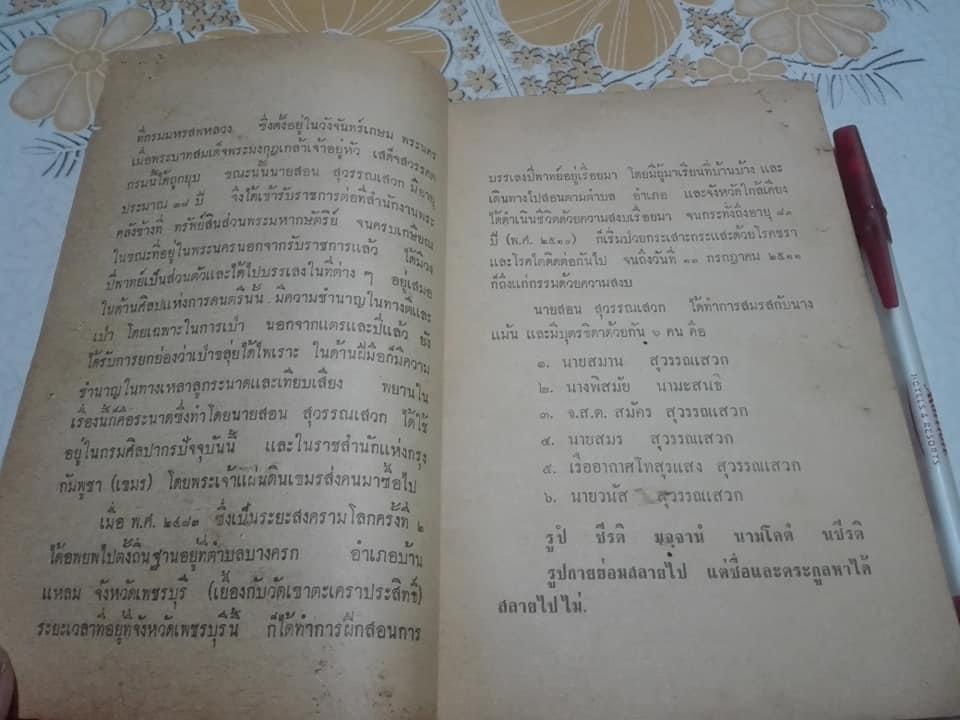 ที่กรมมหรสพหลวง ซึ่งตั้งอยู่ในวังจันทร์เกษม พระนคร
เมื่อพระบาทสมเด็จพระมงกุฎเกล้าเจ้าอยู่หัว เสด็จสวรรคต
กรมนี้ได้ถูกยุบ ขณะนั้นนายสอน สุวรรณเสวก มีอายุ
ประมาณ ๒๘ ปี จึงได้เข้ารับราชการต่อที่สำนักงานพระ
คลังข้างที่ ทรัพย์สินส่วนพระมหากษัตริย์ จนครบเกษียณ
ในขณะที่อยู่ในพระนครนอกจากรับราชการแล้ว ได้มีวง
ปี่พาทย์เป็นส่วนตัวและได้ไปบรรเลงในที่ต่าง ๆ อยู่เสมอ
ในด้านศิลปแห่งการดนตรีนั้น มีความชำนาญในทางตีและ
เป่า โดยเฉพาะในการเป่า นอกจากแตรและปี่แล้ว ยัง
ได้รับการยกย่องว่าเป่าขลุ่ยได้ไพเราะ ในด้านฝีมือก็มีความ
ชำนาญในทางเหลาลูกระนาดและเทียบเสียง พยานใน
เรื่องนี้ก็คือระนาดซึ่งทำโดยนายสอน สุวรรณเสวก ได้ใช้
อยู่ในกรมศิลปากรปัจจุบันนี้ และในราชสำนักแห่งกรุง
กัมพูชา (เขมร) โดยพระเจ้าแผ่นดินเขมรส่งคนมาซื้อไป
เมื่อ พ.ศ. ๒๔๘๓ ซึ่งเป็นระยะสงครามโลกครั้งที่ ๒
ได้อพยพไปตั้งถิ่นฐานอยู่ที่ตำบลบางครก อำเภอบ้าน
แหลม จังหวัดเพชรบุรี (เยื้องกับวัดเขาตะเคราประสิทธิ์)
ระยะเวลาที่อยู่ที่จังหวัดเพชรบุรีนี้ ก็ได้ทำการฝึกสอนการ
บรรเลงปี่พาทย์อยู่เรื่อยมา โดยมีผู้มาเรียนที่บ้านบ้าง และ
เดินทางไปสอนตามตำบล อำเภอ และจังหวัดใกล้เคียง
ได้ดำเนินชีวิตด้วยความสงบเรื่อยมา จนกระทั่งถึงอายุ ๘๓
ปี (พ.ศ. ๒๕๑๐) ก็เริ่มป่วยกระเสาะกระแสะด้วยโรคชรา
และโรคไตติดต่อกันไป จนถึงวันที่ ๑๓ กรกฎาคม ๒๕๑๑
ก็ถึงแก่กรรมด้วยความสงบ
นายสอน สุวรรณเสวก ได้ทำการสมรสกับนาง
แม้น และมีบุตรธิดาด้วยกัน ๖ คน คือ
๑. นายสมาน สุวรรณเสวก
๒. นางพิสมัย นามะสนธิ
๓. จ.ส.ต. สมัคร สุวรรณเสวก
๔. นายสมร สุวรรณเสวก
๕. เรืออากาศโทสุรแสง สุวรรณเสวก
๖. นายวนัส สุวรรณเสวก
รูปํ ชีรติ มจฺจานํ นามโคตฺตํ น ชีรติ
รูปกายย่อมสลายไป แต่ชื่อและตระกูลหาได้
สลายไปไม่.
HOTELS & RESORTS